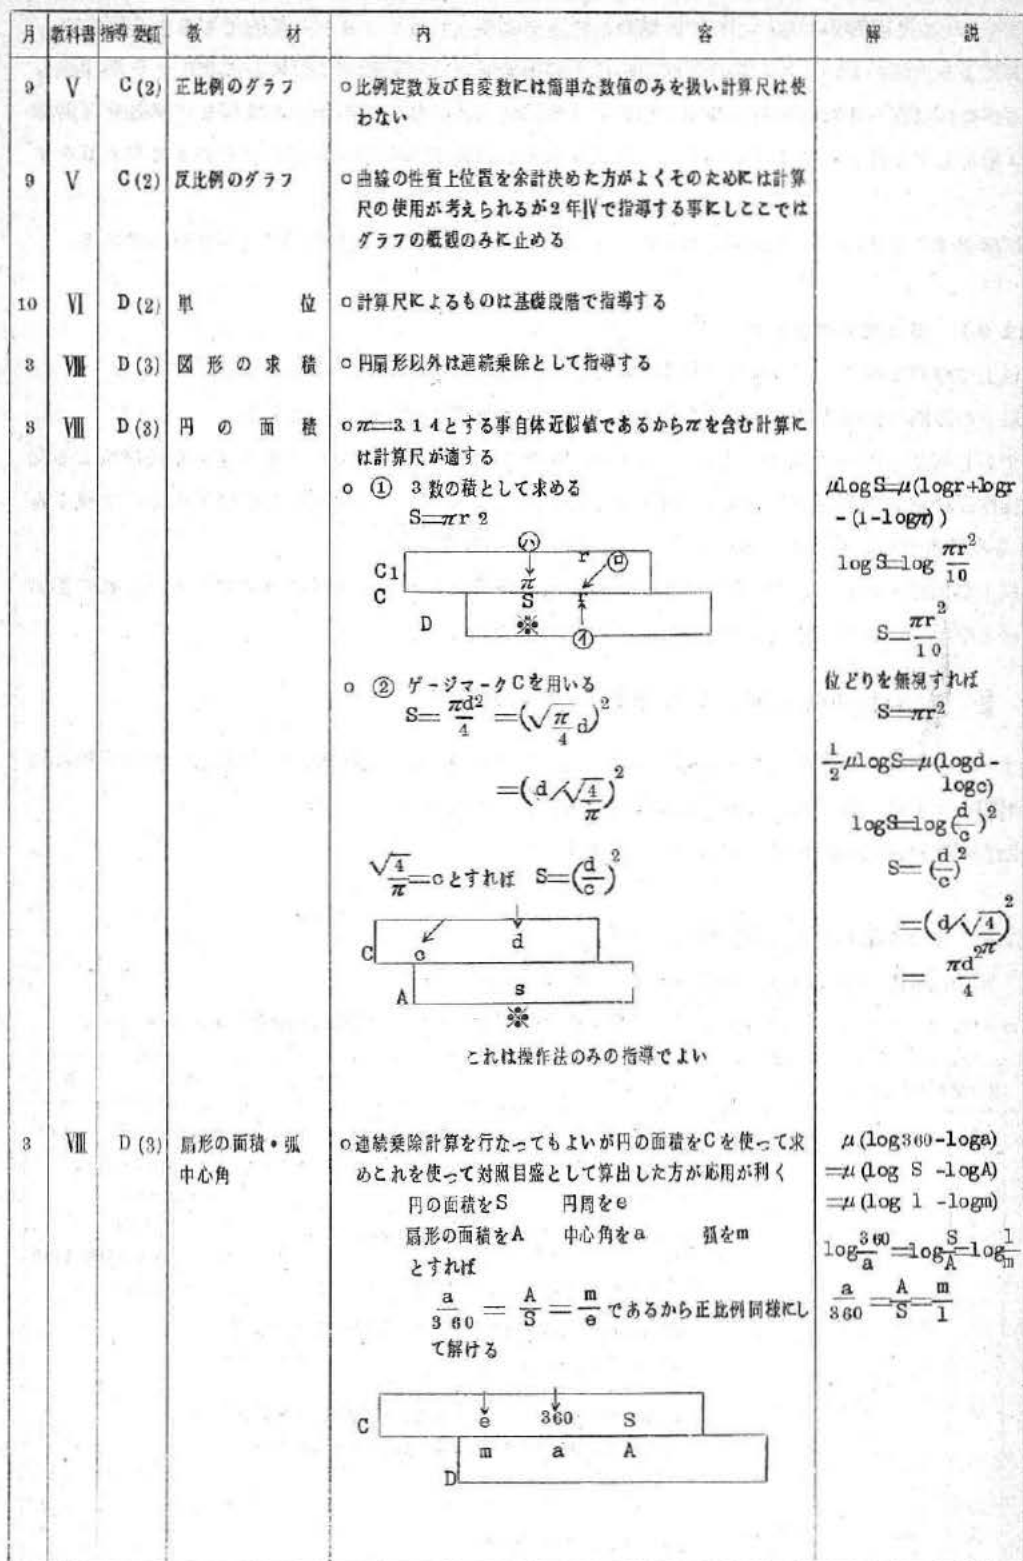 月 教科書 指導要領 教材 内容 解説
9 V C(2) 正比例のグラフ ○比例定数及び自変数には簡単な数値のみを扱い計算尺は使
わない
9 V C(2) 反比例のグラフ ○曲線の性質上位置を余計決めた方がよくそのためには計算
尺の使用が考えられるが2年Ⅳで指導する事にしここでは
グラフの概観のみに止める
10 Ⅵ D(2) 単位 ○計算尺によるものは基礎段階で指導する
3 Ⅷ D(3) 図形の求積 ○円扇形以外は連続乗除として指導する
3 Ⅷ D(3) 円の面積 ○π=3.14とする事自体近似値であるからπを含む計算に
は計算尺が適する
○ ① 3数の積として求める
S=πr2
ハ
C1 r ロ
π
C S r
D ※ イ
μlogS=μ(logr+logr
-(1-logπ))
logS=log πr²/10
S=πr²/10
○ ② ゲージマークCを用いる
S=πd²/4=(√π/4 d)²
=(d/√4/π)²
√4/π=cとすれば S=(d/c)²
C c d
A s
※
これは操作法のみの指導でよい
位どりを無視すれば
S=πr²
1/2 μlogS=μ(logd-
logc)
logS=log(d/c)²
S=(d/c)²
=(d/√4/π)²
=πd²/4
3 Ⅷ D(3) 扇形の面積・弧 ○連続乗除計算を行なってもよいが円の面積をCを使って求
中心角 めこれを使って対照目盛として算出した方が応用が利く
円の面積をS 円周をe
扇形の面積をA 中心角をa 弧をm
とすれば
a/360=A/S=m/e であるから正比例同様にし
て解ける
C e 360 S
m a A
D
μ(log360-loga)
=μ(log S -logA)
=μ(log 1 -logm)
log360/a=logS/A=log1/m
a/360=A/S=m/1